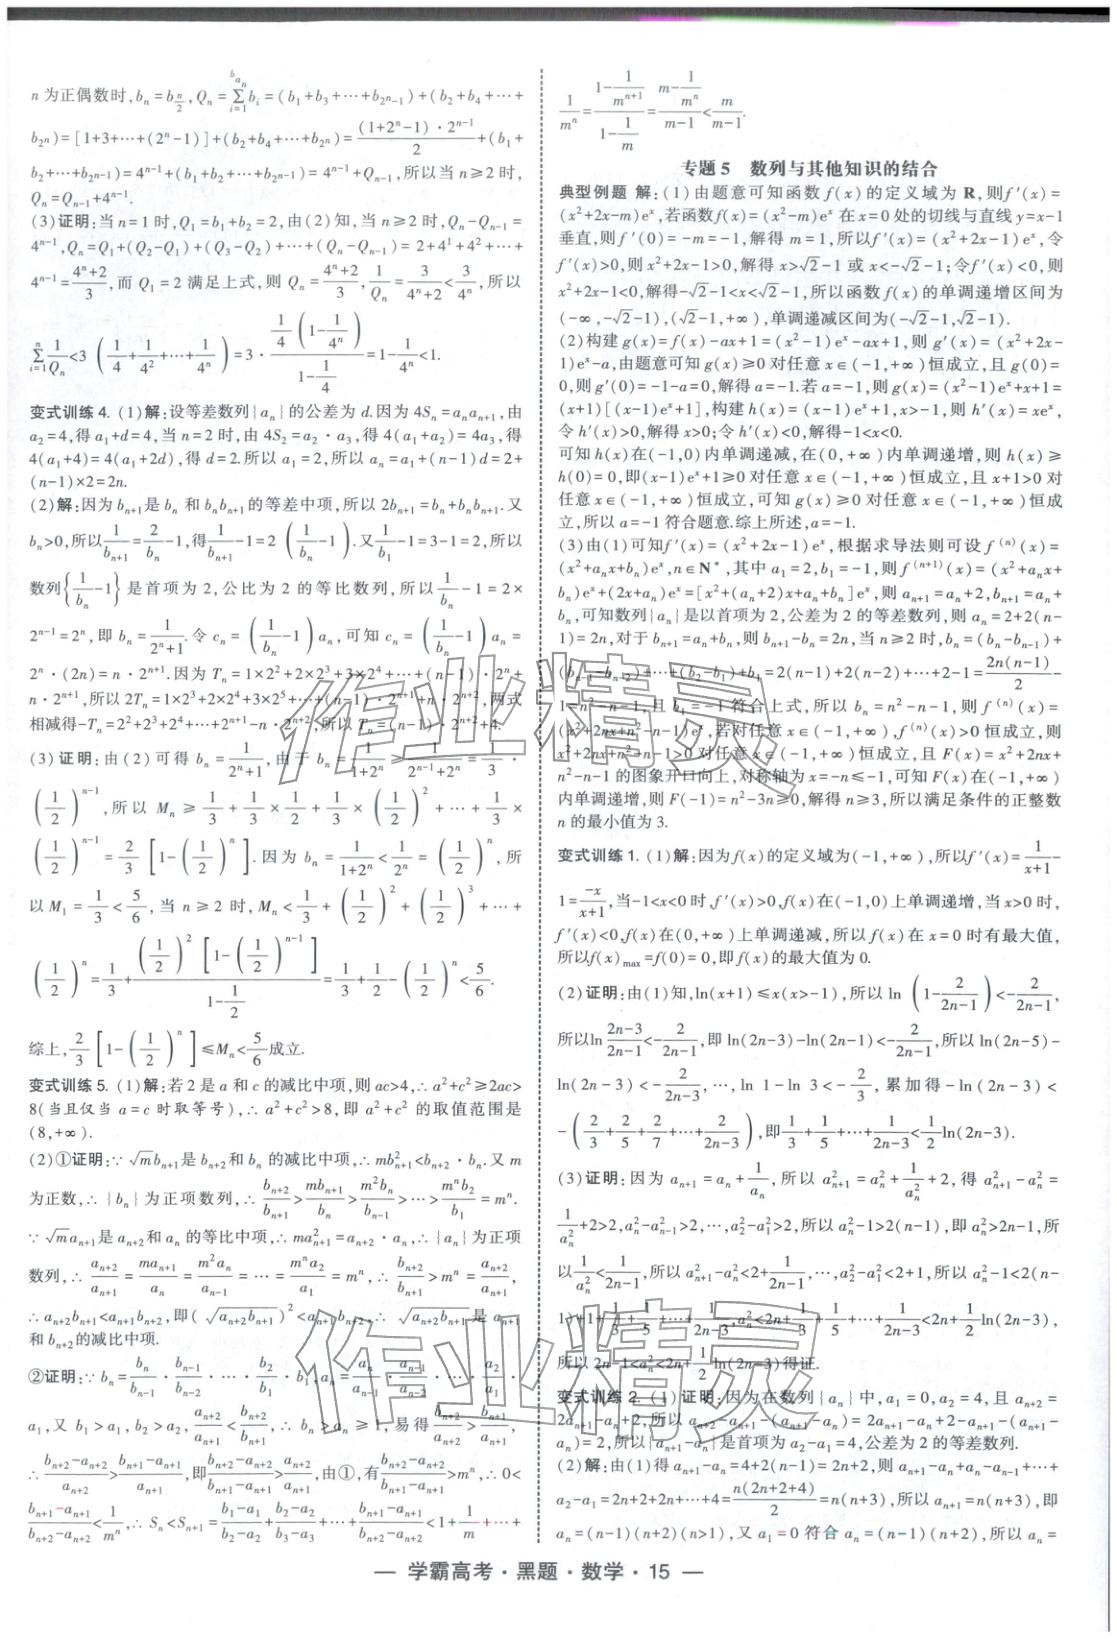 n 为正偶数时,bₙ=b_{n/2},Qₙ=∑_{i=1}^{b_{aₙ}}bᵢ=(b₁+b₃+⋯+b_{2ⁿ-1})+(b₂+b₄+⋯+
b_{2ⁿ})=[1+3+⋯+(2ⁿ-1)]+(b₂+b₄+⋯+b_{2ⁿ})=\frac{(1+2ⁿ-1)·2ⁿ⁻¹}{2}+(b₁+
b₂+⋯+b_{2ⁿ⁻¹})=4ⁿ⁻¹+(b₁+b₂+⋯+b_{2ⁿ⁻¹})=4ⁿ⁻¹+Qₙ₋₁,所以当 n≥2 时,
Qₙ=Qₙ₋₁+4ⁿ⁻¹.
(3)证明:当 n=1 时,Q₁=b₁+b₂=2,由(2)知,当 n≥2 时,Qₙ-Qₙ₋₁=
4ⁿ⁻¹,Qₙ=Q₁+(Q₂-Q₁)+(Q₃-Q₂)+⋯+(Qₙ-Qₙ₋₁)=2+4¹+4²+⋯+
4ⁿ⁻¹=\frac{4ⁿ+2}{3},而 Q₁=2 满足上式,则 Qₙ=\frac{4ⁿ+2}{3},\frac{1}{Qₙ}=\frac{3}{4ⁿ+2}<\frac{3}{4ⁿ},所以
∑_{i=1}^{n}\frac{1}{Qₙ}<3(\frac{1}{4}+\frac{1}{4²}+⋯+\frac{1}{4ⁿ})=3·\frac{\frac{1}{4}(1-\frac{1}{4ⁿ})}{1-\frac{1}{4}}=1-\frac{1}{4ⁿ}<1.
变式训练 4. (1)解:设等差数列{aₙ}的公差为 d.因为 4Sₙ=aₙaₙ₊₁,由
a₂=4,得 a₁+d=4,当 n=2 时,由 4S₂=a₂·a₃,得 4(a₁+a₂)=4a₃,得
4(a₁+4)=4(a₁+2d),得 d=2.所以 a₁=2,所以 aₙ=a₁+(n-1)d=2+
(n-1)×2=2n.
(2)解:因为 bₙ₊₁是 bₙ 和 bₙbₙ₊₁的等差中项,所以 2bₙ₊₁=bₙ+bₙbₙ₊₁.又
bₙ>0,所以\frac{1}{bₙ₊₁}=\frac{2}{bₙ}-1,得\frac{1}{bₙ₊₁}-1=2(\frac{1}{bₙ}-1).又\frac{1}{b₁}-1=3-1=2,所以
数列{\frac{1}{bₙ}-1}是首项为 2,公比为 2 的等比数列,所以\frac{1}{bₙ}-1=2×
2ⁿ⁻¹=2ⁿ,即 bₙ=\frac{1}{2ⁿ+1}.令 cₙ=(\frac{1}{bₙ}-1)aₙ,可知 cₙ=(\frac{1}{bₙ}-1)aₙ=
2ⁿ·(2n)=n·2ⁿ⁺¹.因为 Tₙ=1×2²+2×2³+3×2⁴+⋯+(n-1)·2ⁿ+
n·2ⁿ⁺¹,所以 2Tₙ=1×2³+2×2⁴+3×2⁵+⋯+(n-1)·2ⁿ⁺¹+n·2ⁿ⁺²,两式
相减得-Tₙ=2²+2³+2⁴+⋯+2ⁿ⁺¹-n·2ⁿ⁺²,所以 Tₙ=(n-1)·2ⁿ⁺²+4.
(3)证明:由(2)可得 bₙ=\frac{1}{2ⁿ+1},由于 bₙ=\frac{1}{1+2ⁿ}≥\frac{1}{2ⁿ⁻¹+2ⁿ}=\frac{1}{3}·
(\frac{1}{2})ⁿ⁻¹,所以 Mₙ≥\frac{1}{3}+\frac{1}{3}×\frac{1}{2}+\frac{1}{3}×(\frac{1}{2})²+⋯+\frac{1}{3}×
(\frac{1}{2})ⁿ⁻¹=\frac{2}{3}[1-(\frac{1}{2})ⁿ].因为 bₙ=\frac{1}{1+2ⁿ}<\frac{1}{2ⁿ}=(\frac{1}{2})ⁿ,所
以 M₁=\frac{1}{3}<\frac{5}{6},当 n≥2 时,Mₙ<\frac{1}{3}+(\frac{1}{2})²+(\frac{1}{2})³+⋯+
(\frac{1}{2})ⁿ=\frac{1}{3}+\frac{(\frac{1}{2})²[1-(\frac{1}{2})ⁿ⁻¹]}{1-\frac{1}{2}}=\frac{1}{3}+\frac{1}{2}-(\frac{1}{2})ⁿ<\frac{5}{6}.
综上,\frac{2}{3}[1-(\frac{1}{2})ⁿ]≤Mₙ<\frac{5}{6}成立.
变式训练 5. (1)解:若 2 是 a 和 c 的减比中项,则 ac>4,∴a²+c²≥2ac>
8(当且仅当 a=c 时取等号),∴a²+c²>8,即 a²+c² 的取值范围是
(8,+∞).
(2)①证明:∵√m bₙ₊₁是 bₙ₊₂和 bₙ 的减比中项,∴mb²ₙ₊₁<bₙ₊₂·bₙ.又 m
为正数,∴{bₙ}为正项数列,∴\frac{bₙ₊₂}{bₙ₊₁}>\frac{mbₙ₊₁}{bₙ}>\frac{m²bₙ}{bₙ₋₁}>⋯>\frac{mⁿb₂}{b₁}=mⁿ.
∵√m aₙ₊₁是 aₙ₊₂和 aₙ 的等比中项,∴ma²ₙ₊₁=aₙ₊₂·aₙ,∴{aₙ}为正项
数列,∴\frac{aₙ₊₂}{aₙ₊₁}=\frac{maₙ₊₁}{aₙ}=\frac{m²aₙ}{aₙ₋₁}=⋯=\frac{mⁿa₂}{a₁}=mⁿ,∴\frac{bₙ₊₂}{bₙ₊₁}>mⁿ=\frac{aₙ₊₂}{aₙ₊₁},
∴aₙ₊₂bₙ₊₁<aₙ₊₁bₙ₊₂,即(√(aₙ₊₂bₙ₊₁))²<aₙ₊₁bₙ₊₂,∴√(aₙ₊₂bₙ₊₁)是 aₙ₊₁
和 bₙ₊₂的减比中项.
②证明:∵bₙ=\frac{bₙ}{bₙ₋₁}·\frac{bₙ₋₁}{bₙ₋₂}·⋯·\frac{b₂}{b₁}·b₁,aₙ=\frac{aₙ}{aₙ₋₁}·\frac{aₙ₋₁}{aₙ₋₂}·⋯·\frac{a₂}{a₁}·
a₁,又 b₁>a₁,b₂>a₂,\frac{aₙ₊₂}{aₙ₊₁}<\frac{bₙ₊₂}{bₙ₊₁},∴bₙ>aₙ≥1,易得\frac{bₙ₊₂}{aₙ₊₂}>\frac{bₙ₊₁}{aₙ₊₁},
∴\frac{bₙ₊₂-aₙ₊₂}{aₙ₊₂}>\frac{bₙ₊₁-aₙ₊₁}{aₙ₊₁},即\frac{bₙ₊₂-aₙ₊₂}{bₙ₊₁-aₙ₊₁}>\frac{aₙ₊₂}{aₙ₊₁},由①,有\frac{bₙ₊₂-aₙ₊₂}{bₙ₊₁-aₙ₊₁}>mⁿ,∴0<
\frac{bₙ₊₁-aₙ₊₁}{bₙ₊₂-aₙ₊₂}<\frac{1}{mⁿ},∴Sₙ<Sₙ₊₁=\frac{b₁-a₁}{b₂-a₂}+\frac{b₂-a₂}{b₃-a₃}+⋯+\frac{bₙ₊₁-aₙ₊₁}{bₙ₊₂-aₙ₊₂}<1+\frac{1}{m}+⋯+
\frac{1}{mⁿ}=\frac{1-\frac{1}{mⁿ⁺¹}}{1-\frac{1}{m}}=\frac{m-\frac{1}{mⁿ}}{m-1}<\frac{m}{m-1}.
专题 5 数列与其他知识的结合
典型例题 解:(1)由题意可知函数 f(x)的定义域为 R,则 f′(x)=
(x²+2x-m)eˣ,若函数 f(x)=(x²-m)eˣ 在 x=0 处的切线与直线 y=x-1
垂直,则 f′(0)=-m=-1,解得 m=1,所以 f′(x)=(x²+2x-1)eˣ,令
f′(x)>0,则 x²+2x-1>0,解得 x>√2-1 或 x<-√2-1;令 f′(x)<0,则
x²+2x-1<0,解得-√2-1<x<√2-1,所以函数 f(x)的单调递增区间为
(-∞,-√2-1),(√2-1,+∞),单调递减区间为(-√2-1,√2-1).
(2)构建 g(x)=f(x)-ax+1=(x²-1)eˣ-ax+1,则 g′(x)=(x²+2x-
1)eˣ-a,由题意可知 g(x)≥0 对任意 x∈(-1,+∞)恒成立,且 g(0)=
0,则 g′(0)=-1-a=0,解得 a=-1.若 a=-1,则 g(x)=(x²-1)eˣ+x+1=
(x+1)[(x-1)eˣ+1],构建 h(x)=(x-1)eˣ+1,x>-1,则 h′(x)=xeˣ,
令 h′(x)>0,解得 x>0;令 h′(x)<0,解得-1<x<0.
可知 h(x)在(-1,0)内单调递减,在(0,+∞)内单调递增,则 h(x)≥
h(0)=0,即(x-1)eˣ+1≥0 对任意 x∈(-1,+∞)恒成立,且 x+1>0 对
任意 x∈(-1,+∞)恒成立,可知 g(x)≥0 对任意 x∈(-1,+∞)恒成
立,所以 a=-1 符合题意.综上所述,a=-1.
(3)由(1)可知 f′(x)=(x²+2x-1)eˣ,根据求导法则可设 f⁽ⁿ⁾(x)=
(x²+aₙx+bₙ)eˣ,n∈N*,其中 a₁=2,b₁=-1,则 f⁽ⁿ⁺¹⁾(x)=(x²+aₙx+
bₙ)eˣ+(2x+aₙ)eˣ=[x²+(aₙ+2)x+aₙ+bₙ]eˣ,则 aₙ₊₁=aₙ+2,bₙ₊₁=aₙ+
bₙ,可知数列{aₙ}是以首项为 2,公差为 2 的等差数列,则 aₙ=2+2(n-
1)=2n,对于 bₙ₊₁=aₙ+bₙ,则 bₙ₊₁-bₙ=2n,当 n≥2 时,bₙ=(bₙ-bₙ₋₁)+
(bₙ₋₁-bₙ₋₂)+⋯+(b₂-b₁)+b₁=2(n-1)+2(n-2)+⋯+2-1=\frac{2n(n-1)}{2}-
1=n²-n-1,且 b₁=-1 符合上式,所以 bₙ=n²-n-1,则 f⁽ⁿ⁾(x)=
(x²+2nx+n²-n-1)eˣ,若对任意 x∈(-1,+∞),f⁽ⁿ⁾(x)>0 恒成立,则
x²+2nx+n²-n-1>0 对任意 x∈(-1,+∞)恒成立,且 F(x)=x²+2nx+
n²-n-1 的图象开口向上,对称轴为 x=-n≤-1,可知 F(x)在(-1,+∞)
内单调递增,则 F(-1)=n²-3n≥0,解得 n≥3,所以满足条件的正整数
n 的最小值为 3.
变式训练 1. (1)解:因为 f(x)的定义域为(-1,+∞),所以 f′(x)=\frac{1}{x+1}-
1=\frac{-x}{x+1},当-1<x<0 时,f′(x)>0,f(x)在(-1,0)上单调递增,当 x>0 时,
f′(x)<0,f(x)在(0,+∞)上单调递减,所以 f(x)在 x=0 时有最大值,
所以 f(x)max=f(0)=0,即 f(x)的最大值为 0.
(2)证明:由(1)知,ln(x+1)≤x(x>-1),所以 ln(1-\frac{2}{2n-1})<-\frac{2}{2n-1},
所以 ln\frac{2n-3}{2n-1}<-\frac{2}{2n-1},即 ln(2n-3)-ln(2n-1)<-\frac{2}{2n-1},所以 ln(2n-5)-
ln(2n-3)<-\frac{2}{2n-3},⋯,ln 1-ln 3<-\frac{2}{3},累加得-ln(2n-3)<
-(\frac{2}{3}+\frac{2}{5}+\frac{2}{7}+⋯+\frac{2}{2n-3}),即\frac{1}{3}+\frac{1}{5}+⋯+\frac{1}{2n-3}<\frac{1}{2}ln(2n-3).
(3)证明:因为 aₙ₊₁=aₙ+\frac{1}{aₙ},所以 a²ₙ₊₁=a²ₙ+\frac{1}{a²ₙ}+2,得 a²ₙ₊₁-a²ₙ=
\frac{1}{a²ₙ}+2>2,a²ₙ-a²ₙ₋₁>2,⋯,a²₂-a²₁>2,所以 a²ₙ-1>2(n-1),即 a²ₙ>2n-1,所
以\frac{1}{a²ₙ}<\frac{1}{2n-1},所以 a²ₙ₊₁-a²ₙ<2+\frac{1}{2n-1},⋯,a²₂-a²₁<2+1,所以 a²ₙ-1<2(n-
1)+1+\frac{1}{3}+\frac{1}{5}+⋯+\frac{1}{2n-3},a²ₙ<2n+\frac{1}{3}+\frac{1}{5}+⋯+\frac{1}{2n-3}<2n+\frac{1}{2}ln(2n-3),
所以 2n-1<a²ₙ<2n+\frac{1}{2}ln(2n-3)得证.
变式训练 2. (1)证明:因为在数列{aₙ}中,a₁=0,a₂=4,且 aₙ₊₂=
2aₙ₊₁-aₙ+2,所以 aₙ₊₂-aₙ₊₁-(aₙ₊₁-aₙ)=2aₙ₊₁-aₙ+2-aₙ₊₁-(aₙ₊₁-
aₙ)=2,所以{aₙ₊₁-aₙ}是首项为 a₂-a₁=4,公差为 2 的等差数列.
(2)解:由(1)得 aₙ₊₁-aₙ=4+2(n-1)=2n+2,则 aₙ₊₁-aₙ+aₙ-aₙ₋₁+⋯+
a₂-a₁=2n+2+2n+⋯+4=\frac{n(2n+2+4)}{2}=n(n+3),所以 aₙ₊₁=n(n+3),即
aₙ=(n-1)(n+2)(n>1),又 a₁=0 符合 aₙ=(n-1)(n+2),所以 aₙ=
— 学霸高考·黑题·数学·15 —
作业精灵
作业精灵